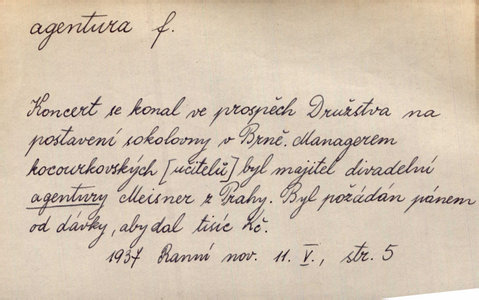 agentura f.
Koncert se konal ve prospěch Družstva na
postavení sokolovny v Brně. Managerem
kocourkovských [učitelů] byl majitel divadelní
agentury Meisner z Prahy. Byl požádán pánem
od dávky, aby dal tisíc Kč.
1937 Ranní nov. 11. V., str. 5